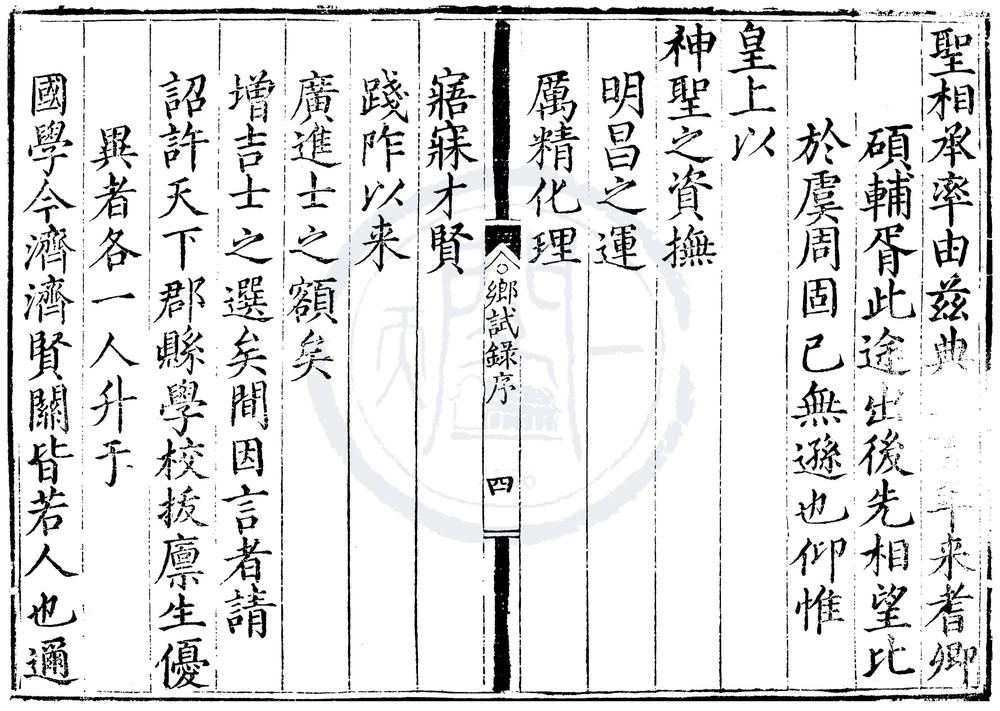 聖相承率由茲典百年来耆卿
碩輔胥此途出後先相望比
於虞周固已無遜也仰惟
皇上以
神聖之資撫
明昌之運
厲精化理
鄉試錄序
四
寤寐才賢
踐阼以来
廣進士之額矣
增吉士之選矣間因言者請
詔許天下郡縣學校拔廩生優
異者各一人升于
國學今濟濟賢關皆若人也邇